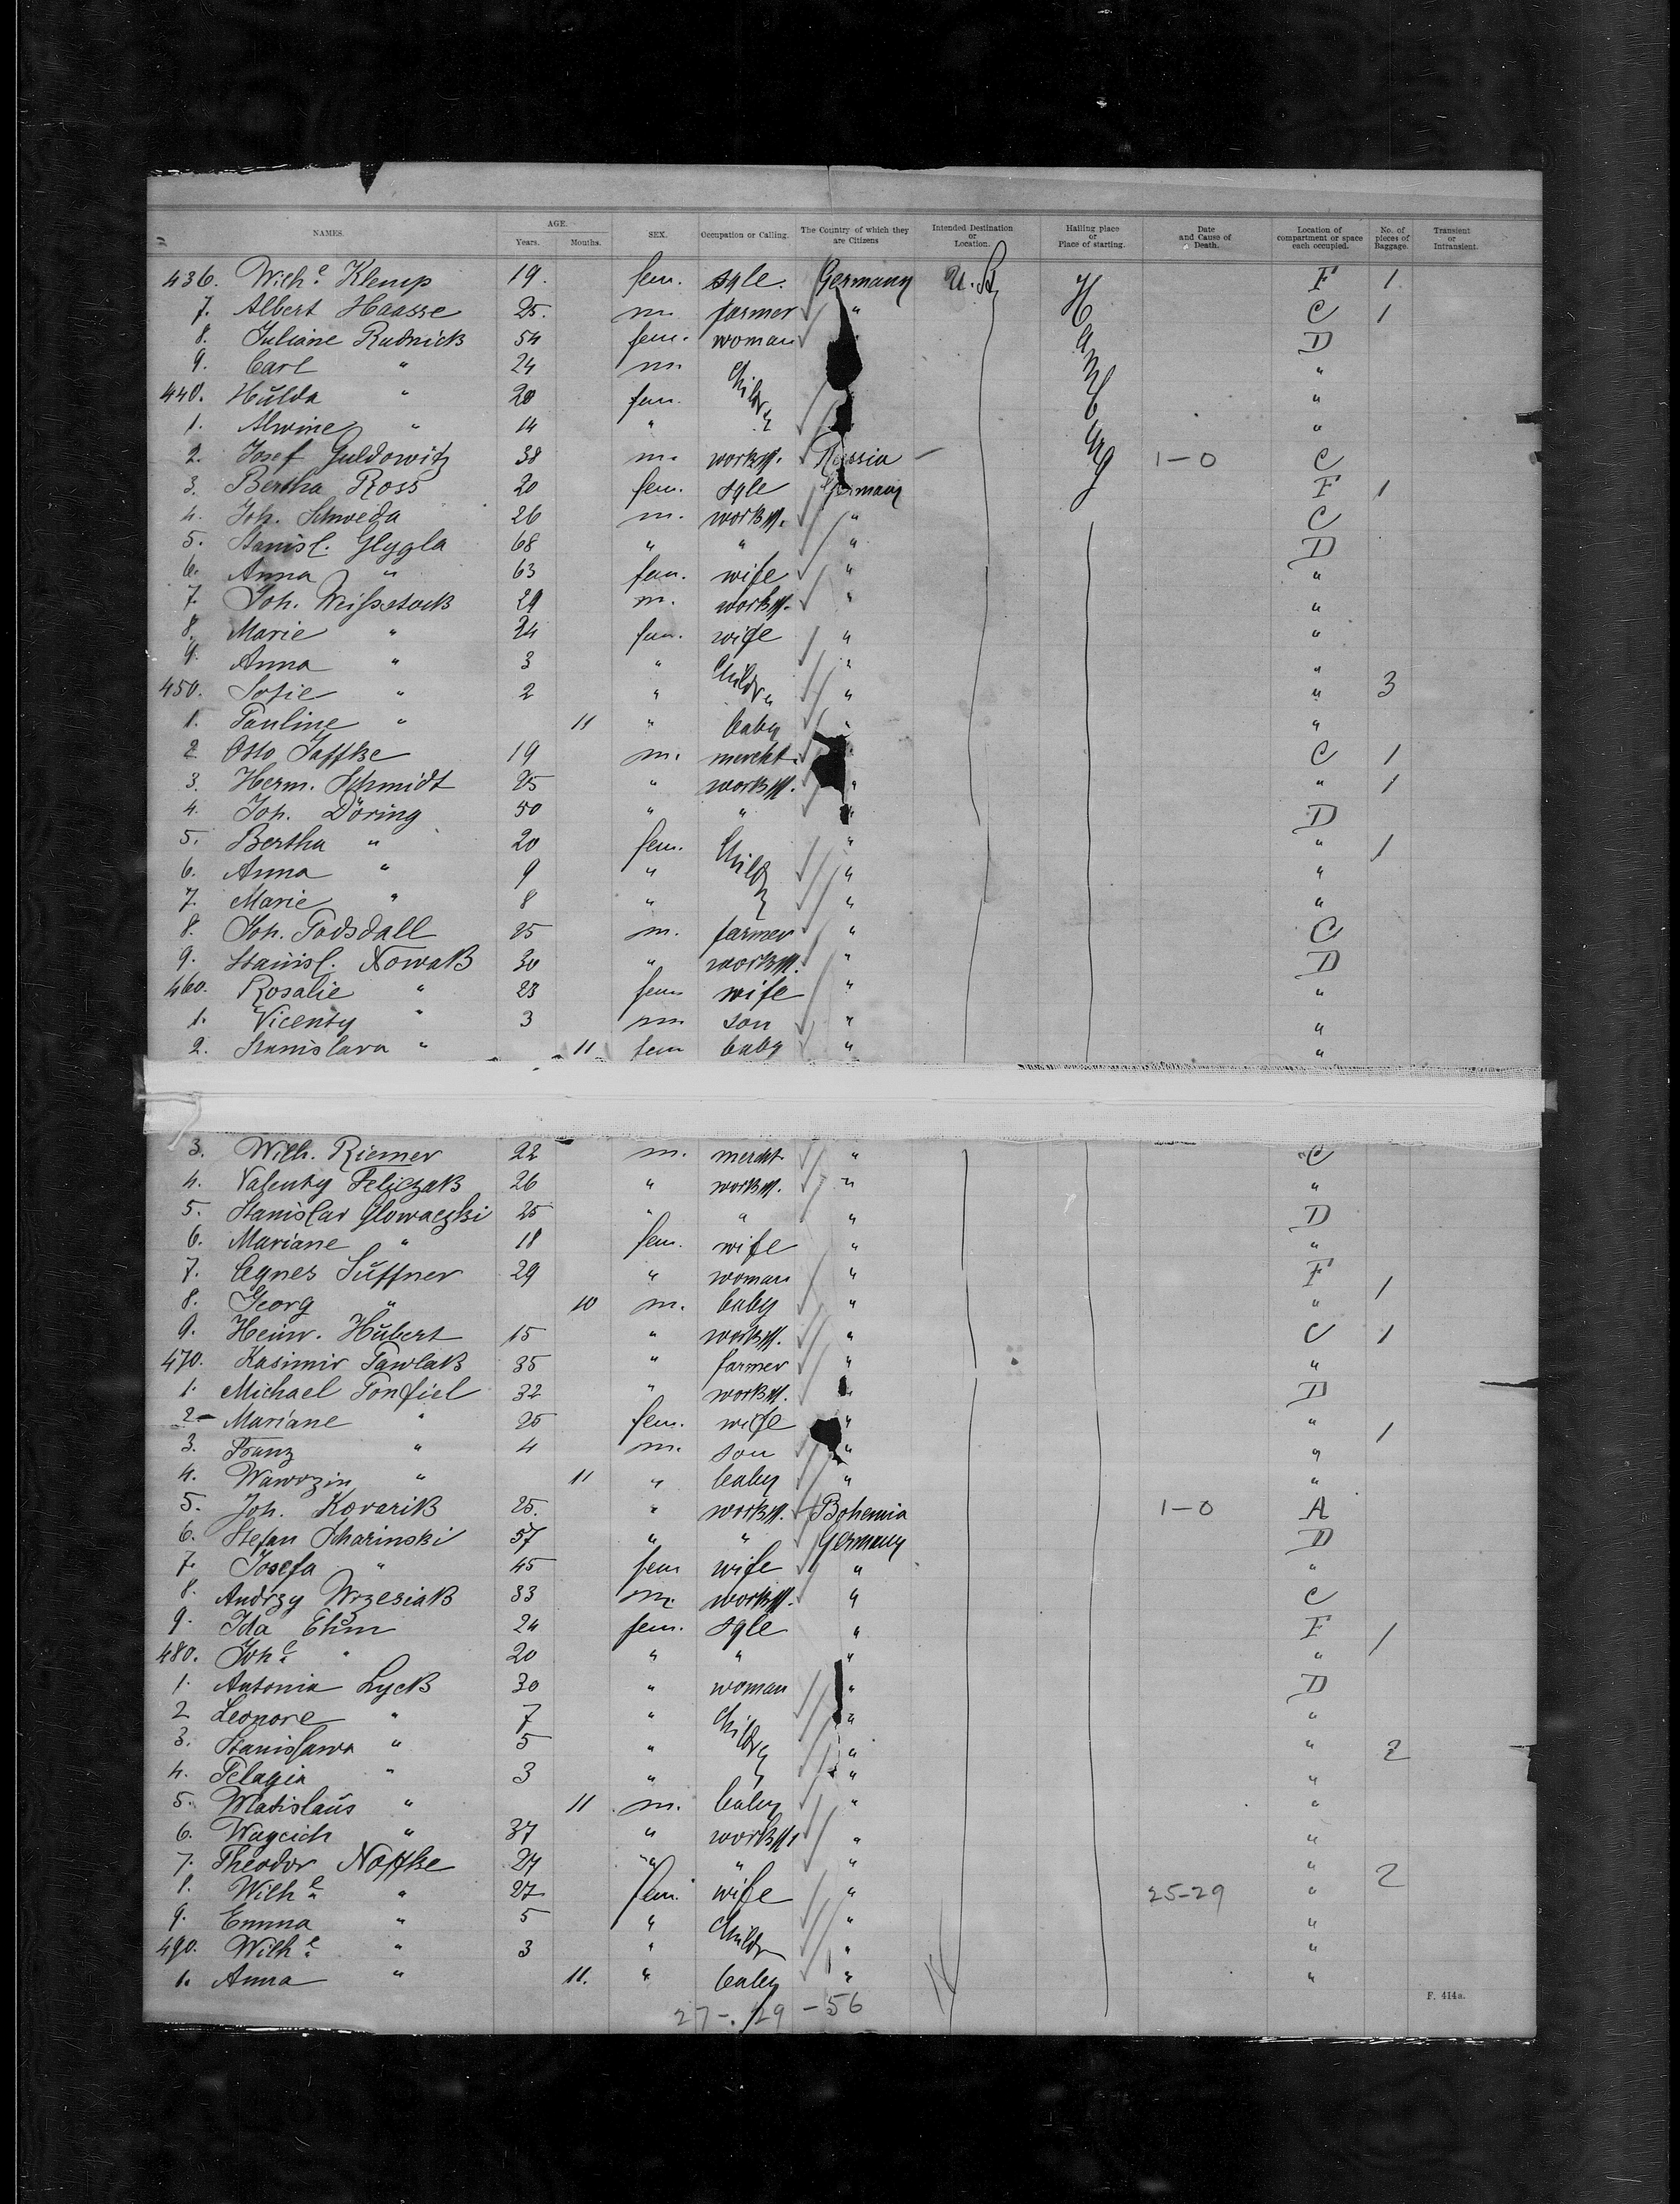 NAMES. AGE. Years. Months. SEX. Occupation or Calling. The Country of which they are Citizens Intended Destination or Location. Hailing place or Place of starting. Date and Cause of Death. Location of compartment or space each occupied. No. of pieces of Baggage. Transient or Intransient.
436. Wilhe Klemp 19. fem. sgle. Germany U.S. Hamburg F 1
7. Albert Haasse 25. m. farmer " C 1
8. Juliane Rudnick 54 fem. woman D
9. Carl " 24 m. Childr "
440. Hulda " 20 fem. "
1. Alwine " 14 " "
2. Josef Guldowitz 38 m. workm. Russia 1-0 C
3. Bertha Ross 20 fem. sgle Germany F 1
4. Joh. Schweda 26 m. workm. " C
5. Stanisl. Glygla 68 " " " D
6. Anna " 63 fem. wife " "
7. Joh. Weißstock 29 m. workm. " "
8. Marie " 24 fem. wife " "
9. Anna " 3 " Childr " "
450. Sofie " 2 " " " 3
1. Pauline " 11 " baby " "
2 Otto Jaffke 19 m. mercht. C 1
3. Herm. Schmidt 25 " workm. " " 1
4. Joh. Döring 50 " " " D
5. Bertha " 20 fem. Childr " " 1
6. Anna " 9 " " "
7. Marie " 8 " " "
8. Joh. Podsdall 25 m. farmer " C
9. Stanisl. Nowak 30 " workm. " D
460. Rosalie " 23 fem wife " "
1. Vicenty " 3 m. son " "
2. Stanislava " 11 fem baby " "
3. Wilh. Riemer 22 m. mercht. " C
4. Valenty Feliczak 26 " workm. " "
5. Stanislav Glowaczki 25 " " " D
6. Mariane " 18 fem. wife " "
7. Agnes Suffner 29 " woman " F 1
8. Georg " 10 m. baby " "
9. Heinr. Hubert 15 " workm. " C 1
470. Kasimir Pawlak 35 " farmer " "
1. Michael Ponfiel 32 " workm. " D
2 Mariane " 25 fem. wife " " 1
3. Franz " 4 m. son " "
4. Wawrzin " 11 " baby " "
5. Joh. Kovarik 25. " workm. Bohemia 1-0 A
6. Stefan Scharinski 57 " " Germany D
7. Josefa " 45 fem wife " "
8. Andrzy Wrzesiak 33 m. workm. " C
9. Ida Ehm 24 fem. sgle " F 1
480. Johe " 20 " " " "
1. Antonia Lyck 30 " woman " D
2 Leonore " 7 " Childr " "
3. Stanislawa " 5 " " " 2
4. Pelagia " 3 " " "
5. Wladislaus " 11 m. baby " "
6. Waycich " 37 " workm " "
7. Theodor Noffke 27 " " " " 2
8. Wilhe " 27 fem. wife " 25-29 "
9. Emma " 5 " Childr " "
490. Wilhe " 3 " " "
1. Anna " 11. " baby " "
27-. 29 - 56
F. 414a.